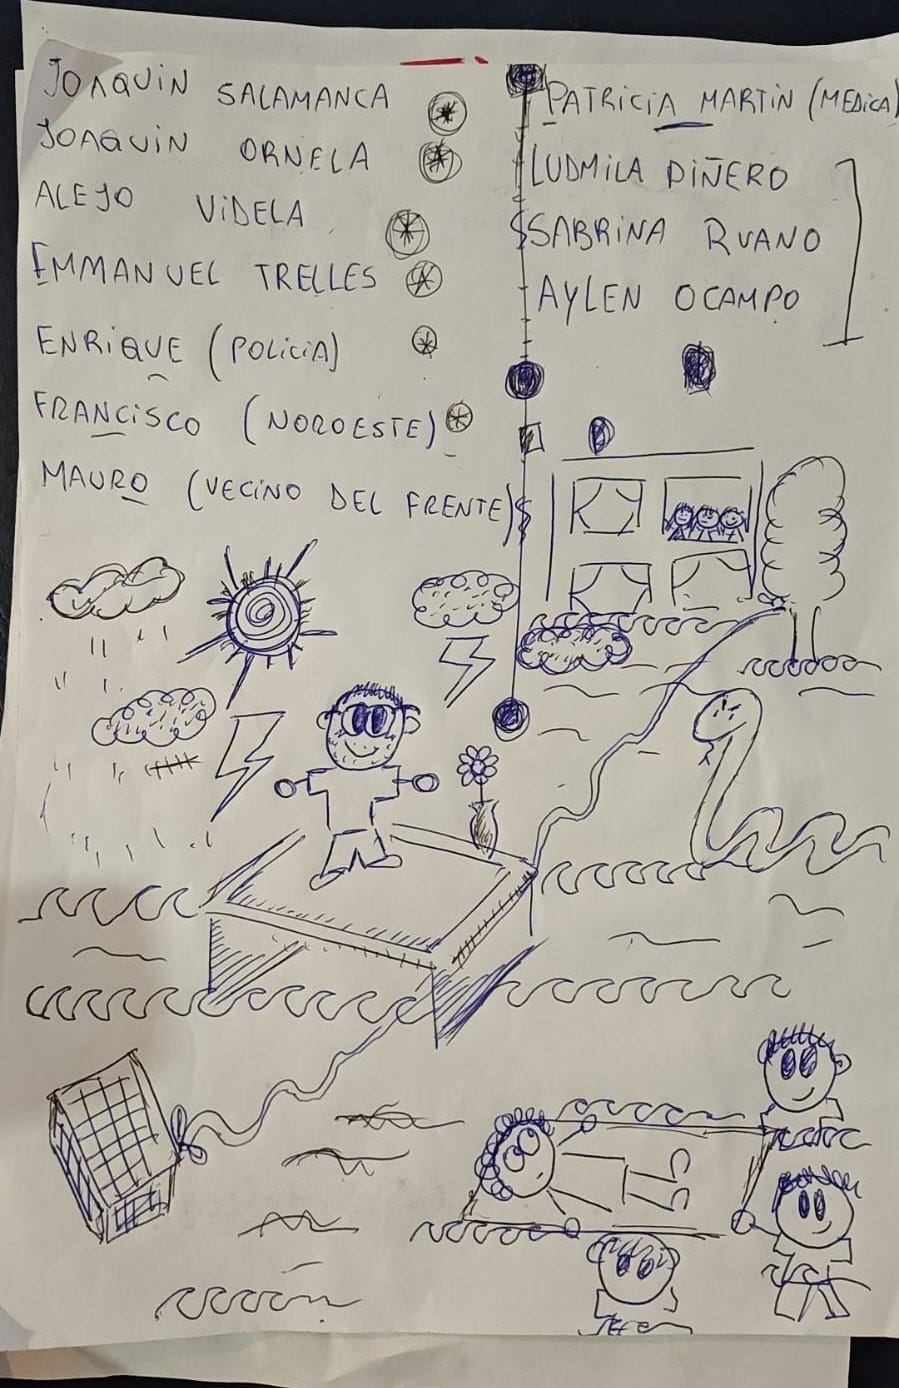 JOAQUIN SALAMANCA
JOAQUIN ORNELA
ALEJO VIDELA
EMMANUEL TRELLES
ENRIQUE (POLICIA)
FRANCISCO (NOROESTE)
MAURO (VECINO DEL FRENTE)
PATRICIA MARTIN (MEDICA)
LUDMILA PIÑERO
SABRINA RUANO
AYLEN OCAMPO